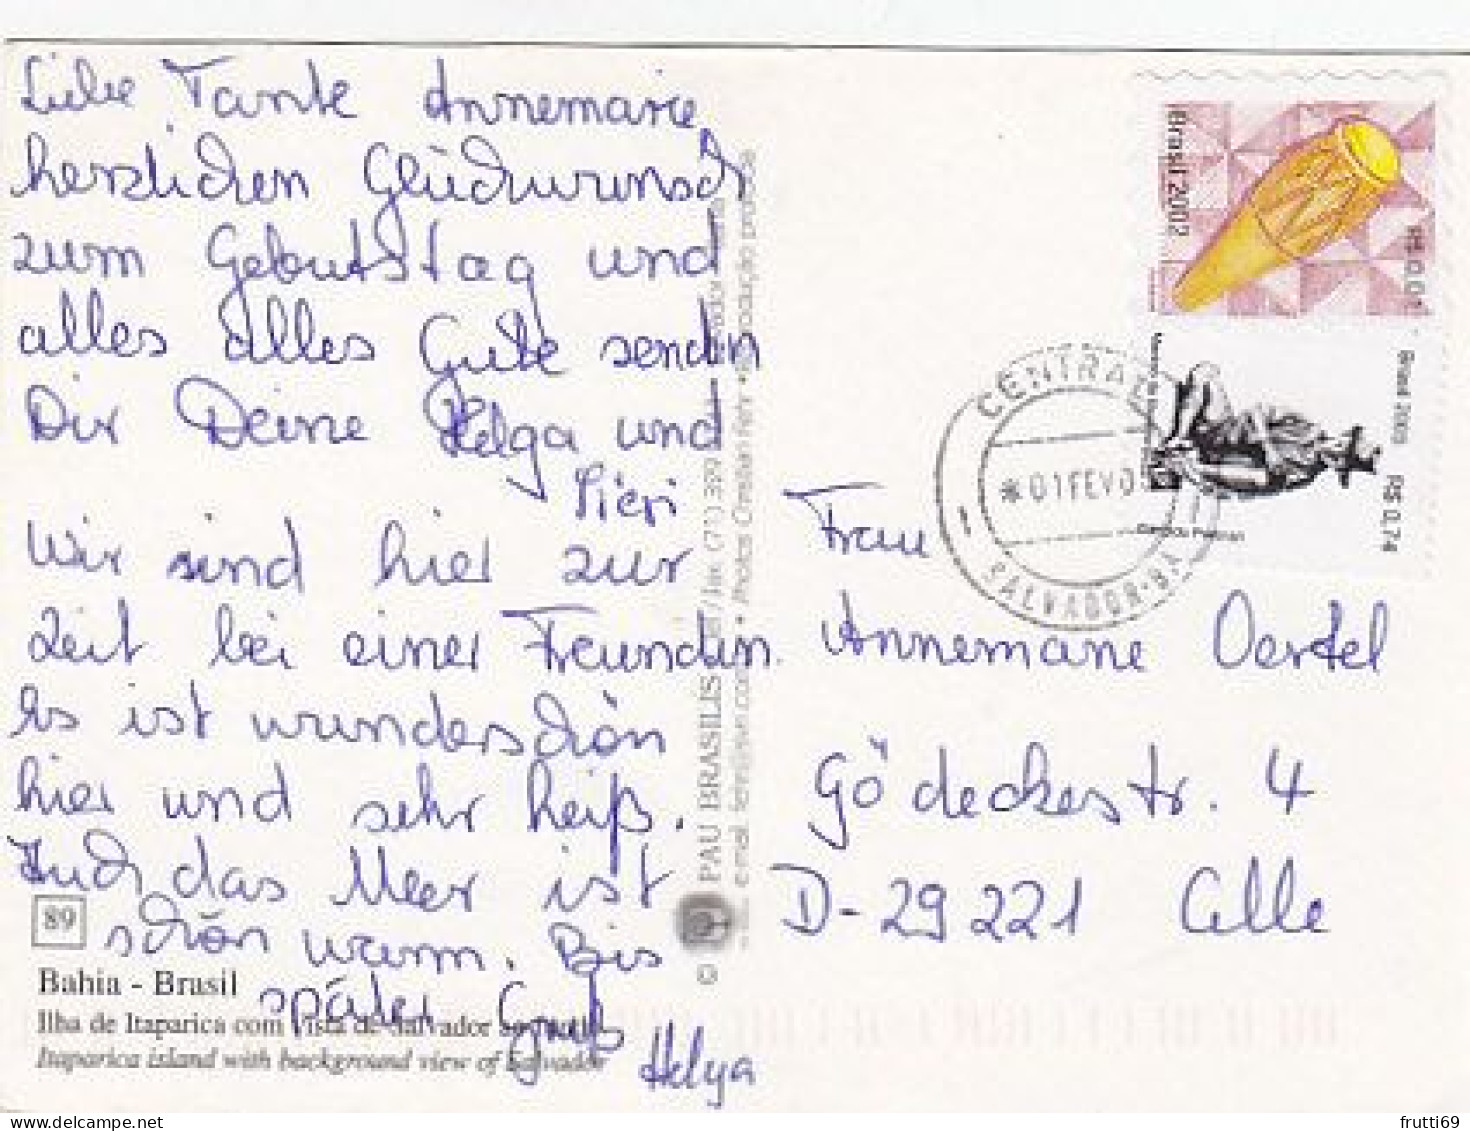 Liebe Tante Annemarie,
herzlichen Glückwunsch
zum Geburtstag und
alles alles Gute senden
Dir Deine Helga und
Pieri
Wir sind hier zur
Zeit bei einer Freundin.
Es ist wunderschön
hier und sehr heiß.
Auch das Meer ist
schön warm. Bis
später Gruß
Helga
89
Bahia - Brasil
Ilha de Itaparica com vista de Salvador
Itaparica island with background view of Salvador
© PAU BRASILIS
Photos Christian Kehr
Brasil 2002
R$ 0,01
Brasil 2005
R$ 0,74
CENTRAL
*01 FEV 0
SALVADOR-BA
Frau
Annemarie Oertel
Gödeckestr. 4
D-29221 Celle
frutti69